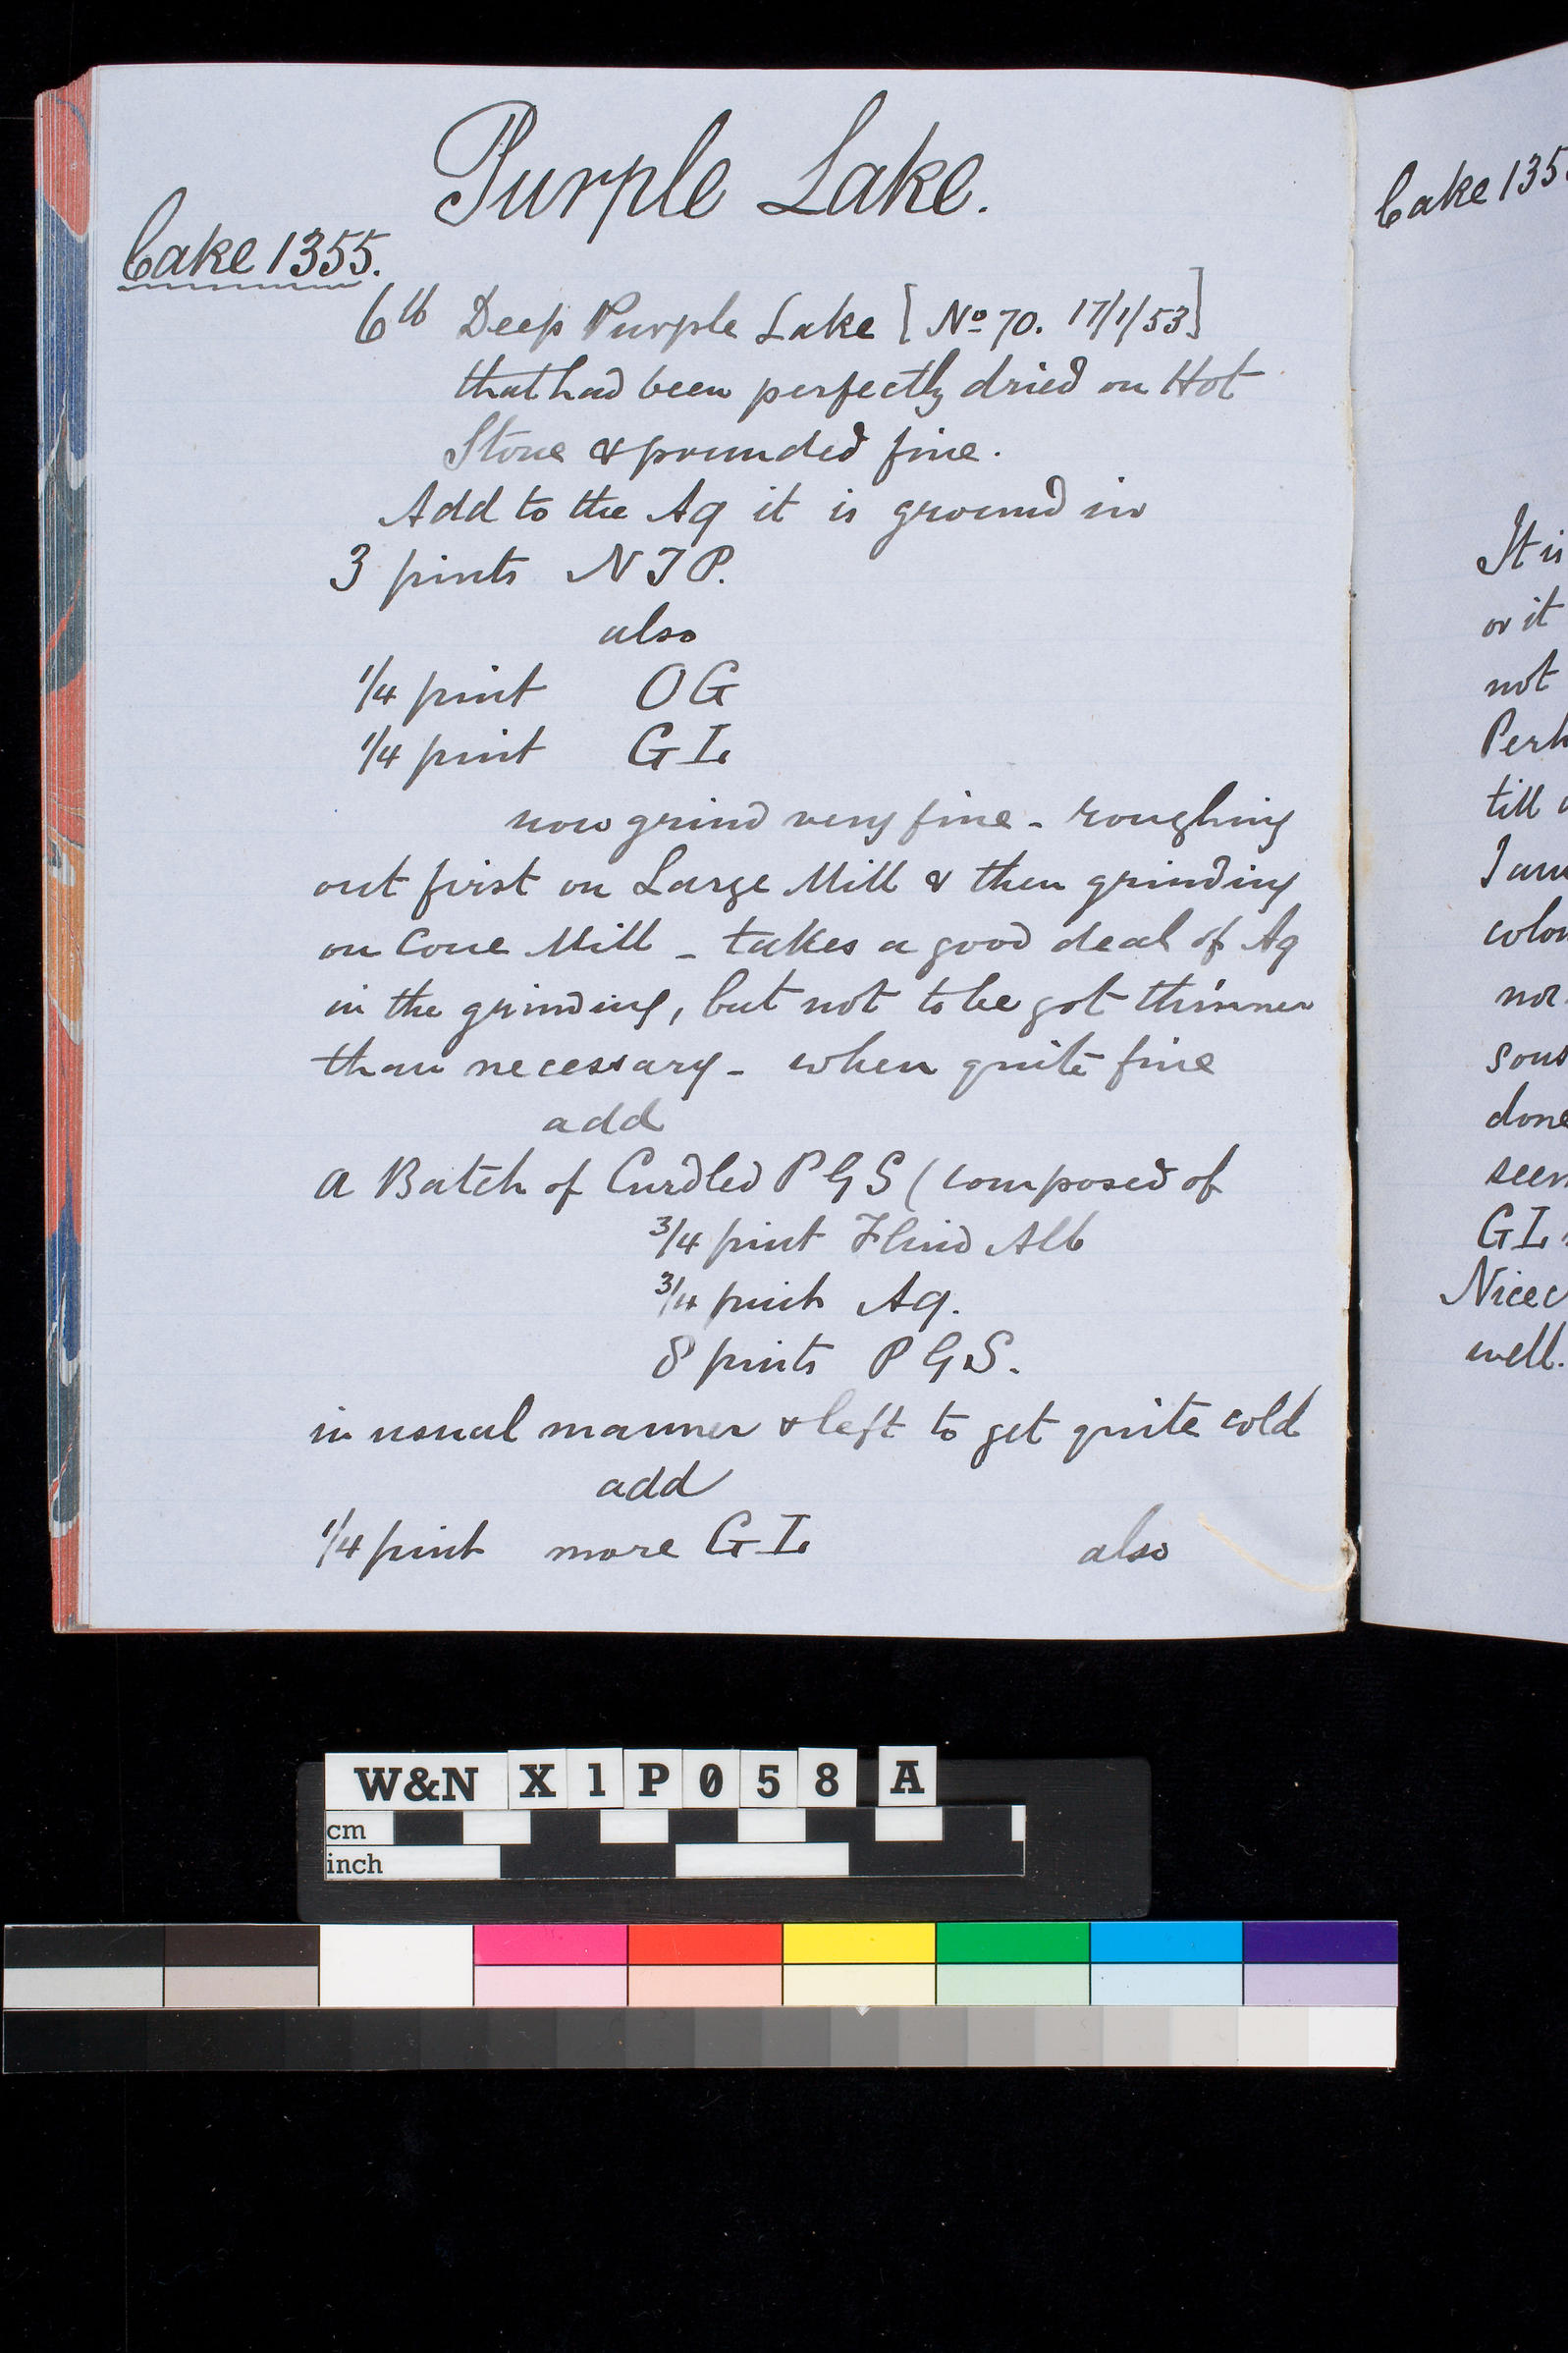 Purple Lake.
Cake 1355.
6 lb Deep Purple Lake [ No 70. 17/1/53 ]
that had been perfectly dried on Hot
Stone & pounded fine.
Add to the Aq it is ground in
3 pints N T P.
also
1/4 pint O G
1/4 pint G I
now grind very fine - roughing
out first on Large Mill & then grinding
on Cone Mill - takes a good deal of Aq
in the grinding, but not to be got thinner
than necessary - when quite fine
add
a Batch of Curdled P G S ( composed of
3/4 pint Fluid Alb
3/4 pint Aq.
8 pints P G S.
in usual manner & left to get quite cold
add
1/4 pint more G I also
Cake 135
It is
or it
not
Perh
till
colou
nor
done
seem
G I
Nice
well.
W&N X 1 P 0 5 8 A
cm
inch